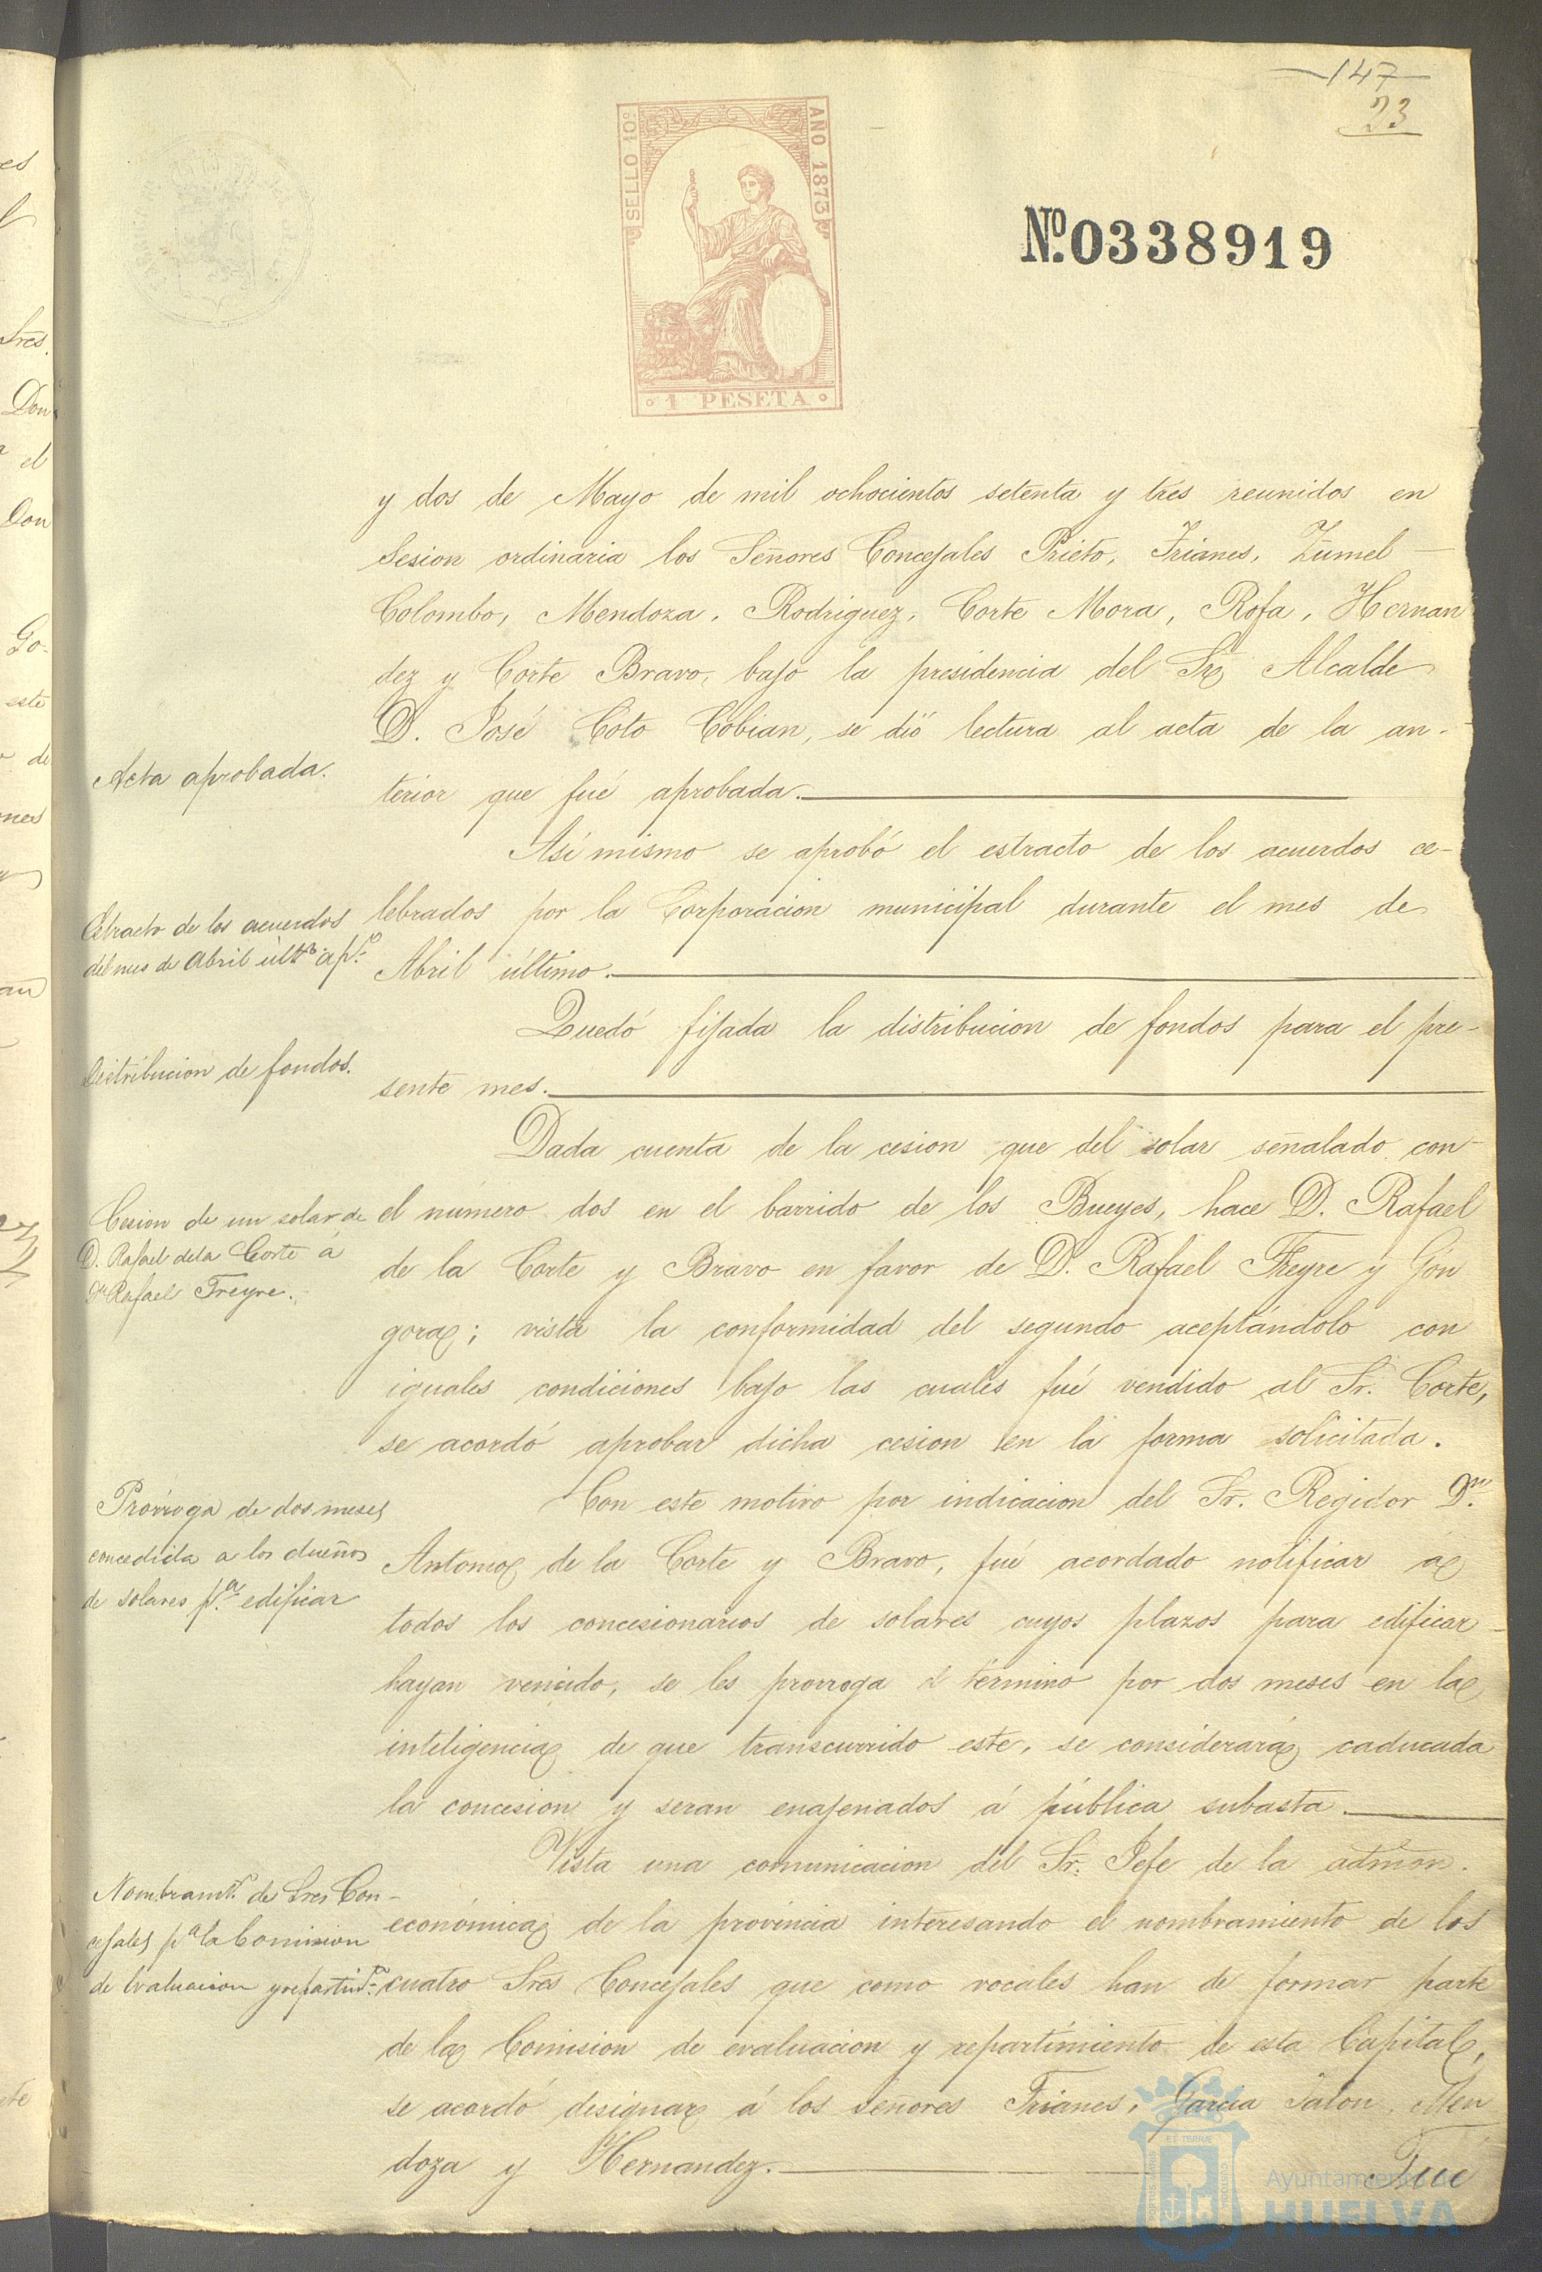 147
23
SELLO 10º
AÑO 1873
1 PESETA
Nº 0338919
y dos de Mayo de mil ochocientos setenta y tres reunidos en
Sesion ordinaria los Señores Concejales Prieto, Trianes, Zumel
Colombo, Mendoza, Rodriguez, Corte Mora, Rofa, Hernan
dez y Corte Bravo, bajo la presidencia del Sr. Alcalde
D. José Coto Cobian, se dió lectura al acta de la an-
Acta aprobada.
terior que fué aprobada.
Asi mismo se aprobó el estracto de los acuerdos ce-
Estracto de los acuerdos
del mes de Abril últº. apº.
lebrados por la Corporacion municipal durante el mes de
Abril último.
Quedó fijada la distribucion de fondos para el pre-
Distribucion de fondos.
sente mes.
Dada cuenta de la cesion que del solar señalado con
Cesion de un solar de
D. Rafael de la Corte á
Dn Rafael Freyre.
el número dos en el barrido de los Bueyes, hace D. Rafael
de la Corte y Bravo en favor de D. Rafael Freyre y Gón
gora; vista la conformidad del segundo aceptándolo con
iguales condiciones bajo las cuales fué vendido al Sr. Corte,
se acordó aprobar dicha cesion en la forma solicitada.
Prórroga de dos meses
concedida a los dueños
de solares pª. edificar
Con este motivo por indicacion del Sr. Regidor Dn.
Antonio de la Corte y Bravo, fué acordado notificar á
todos los concesionarios de solares cuyos plazos para edificar
hayan vencido, se les prorroga el término por dos meses en la
inteligencia de que transcurrido este, se considerará caducada
la concesion y seran enajenados á pública subasta.
Vista una comunicacion del Sr. Jefe de la admon.
Nombramtº. de Sres Con-
cejales pª la Comision
de Evaluacion y repartimtº.
económica de la provincia interesando el nombramiento de los
cuatro Sres Concejales que como vocales han de formar parte
de la Comision de evaluacion y repartimiento de esta Capital,
se acordó designar á los señores Trianes, Garcia Jalon, Men
doza y Hernandez.
Fué
Ayuntamiento de
HUELVA